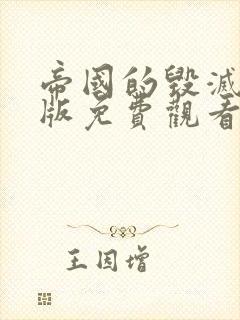 帝國的毀滅
版免費觀看
王因增